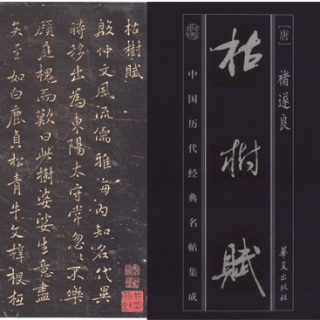 枯樹賦
殷仲文風流儒雅海內知名代異
時移出為東陽太守常忽忽不樂
顧庭槐而歎曰此樹婆娑生意盡
矣至如白鹿貞松青牛文梓根柢
[唐]
褚遂良
枯樹賦
中国历代经典名帖集成
华夏出版社